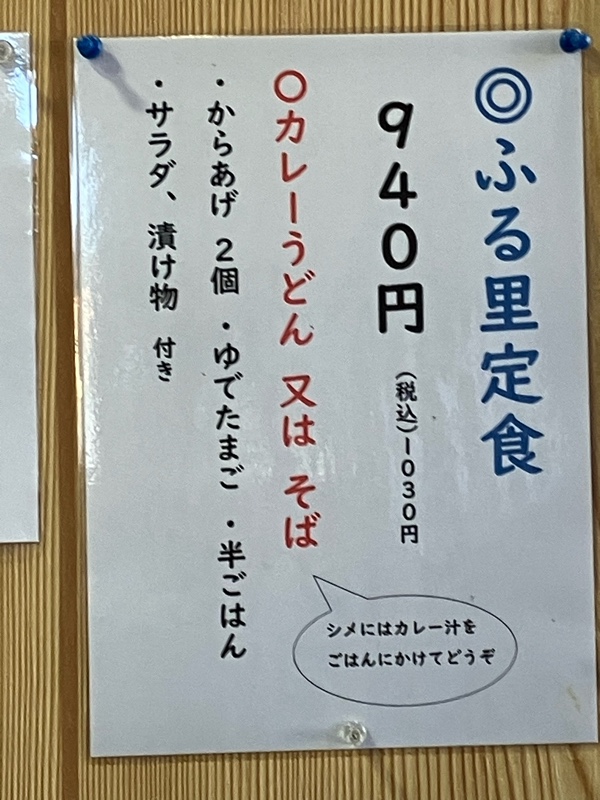 ◎ふる里定食
940円 (税込)1030円
〇カレーうどん 又は そば
・からあげ 2個 ・ゆでたまご ・半ごはん
・サラダ、漬け物 付き
シメにはカレー汁を
ごはんにかけてどうぞ